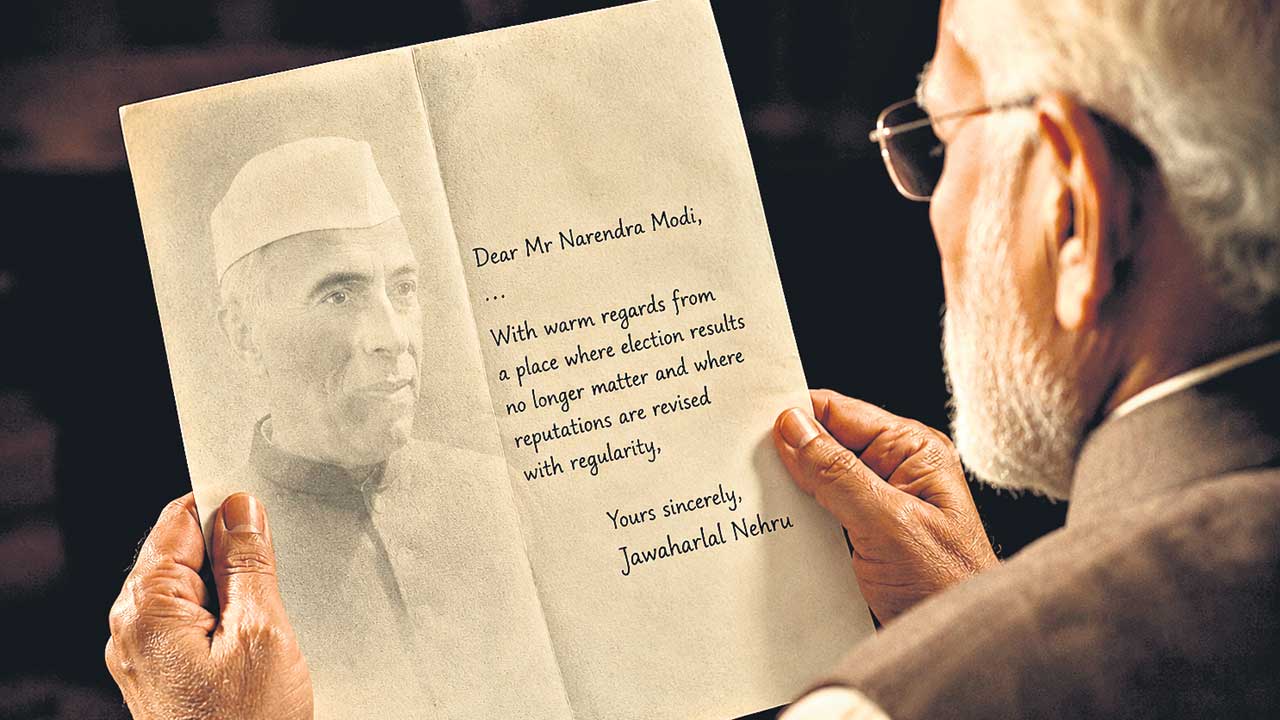 Dear Mr Narendra Modi,
...
With warm regards from
a place where election results
no longer matter and where
reputations are revised
with regularity,
Yours sincerely,
Jawaharlal Nehru